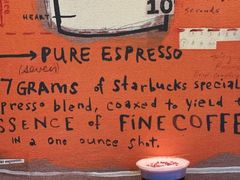 HEART
10
seconds
PURE ESPRESSO
(seven)
7 GRAMS of Starbucks special
presso blend, coaxed to yield t
SSENCE of FINE COFFE
IN a one ounce shot.